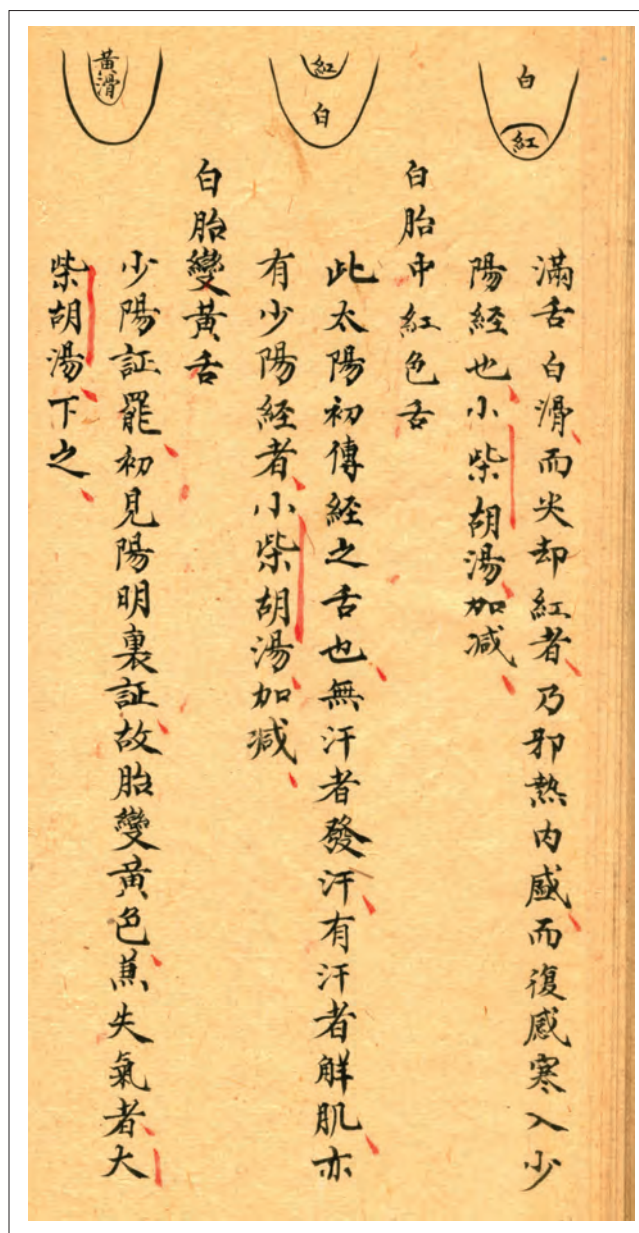 白
紅
滿舌白滑而尖却紅者乃邪熱内盛而復感寒入少
陽経也小柴胡湯加减
紅
白
白胎中紅色舌
此太陽初傳経之舌也無汗者發汗有汗者觧肌亦
有少陽経者小柴胡湯加减
黃滑
白胎變黃舌
少陽証罷初見陽明裏証故胎變黃色兼失氣者大
柴胡湯下之